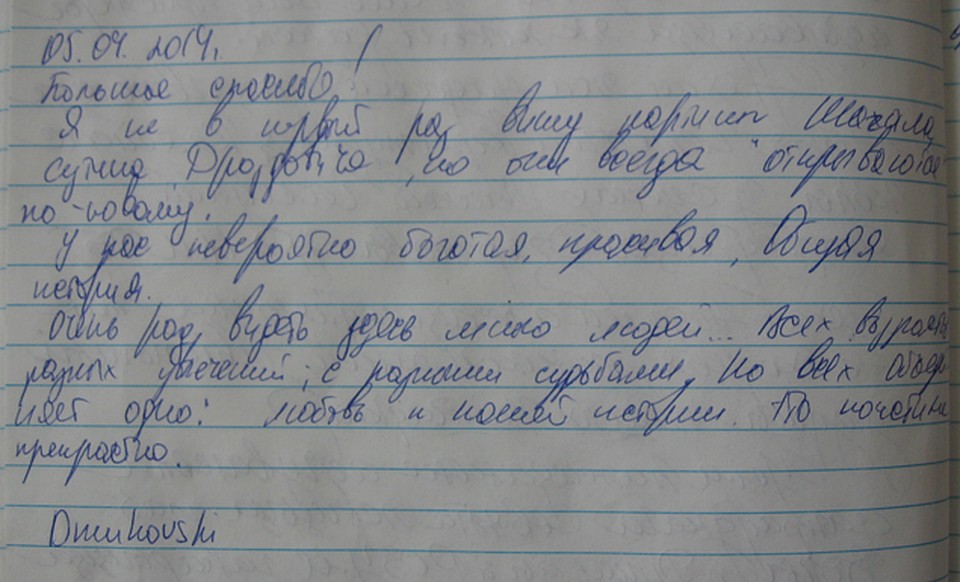 05.04.2014г.
Большое спасибо!
Я не в первый раз вижу картины Шагала,
Сутина, Дроздовича, но они всегда открываются
по-новому.
У нас невероятно богатая, красивая, общая
история.
Очень рад видеть здесь много людей... Всех возрастов,
разных увлечений, с разными судьбами. Но всех объеди
няет одно: любовь к нашей истории. Это поистине
прекрасно.
Dmukovski